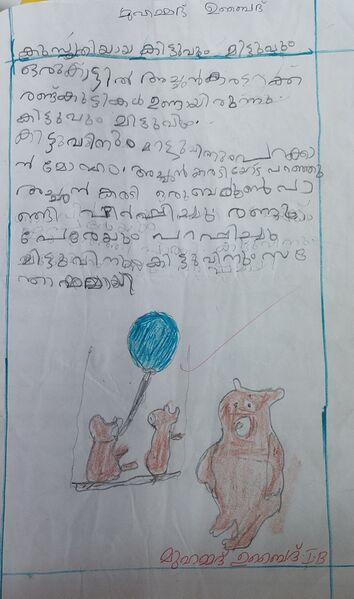 മുഹമ്മദ് ഉബൈദ്
കുസൃതിയായ കിട്ടുവും മിട്ടുവും
ഒരുകാട്ടിൽ അച്ചൻകരടിക്ക്
രണ്ട്കുട്ടികൾ ഉണ്ടായിരുന്നു.
കിട്ടുവും മിട്ടുവും.
കിട്ടുവിനും മിട്ടുവിനുംപറക്കാ
ൻ മോഹം. അച്ചൻ കരടിയോട് പറഞ്ഞു
അച്ചൻ കരടി ഒരുബലൂൺ വാ
ങ്ങി രണ്ടു
പേരേയും പറപ്പിച്ചു
മിട്ടുവിനും കിട്ടുവിനും സ
ന്തോഷമായി
മുഹമ്മദ് ഉബൈദ് I B